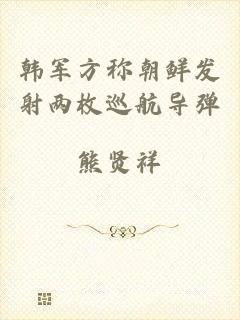 韩军方称朝鲜发
射两枚巡航导弹
熊贤祥